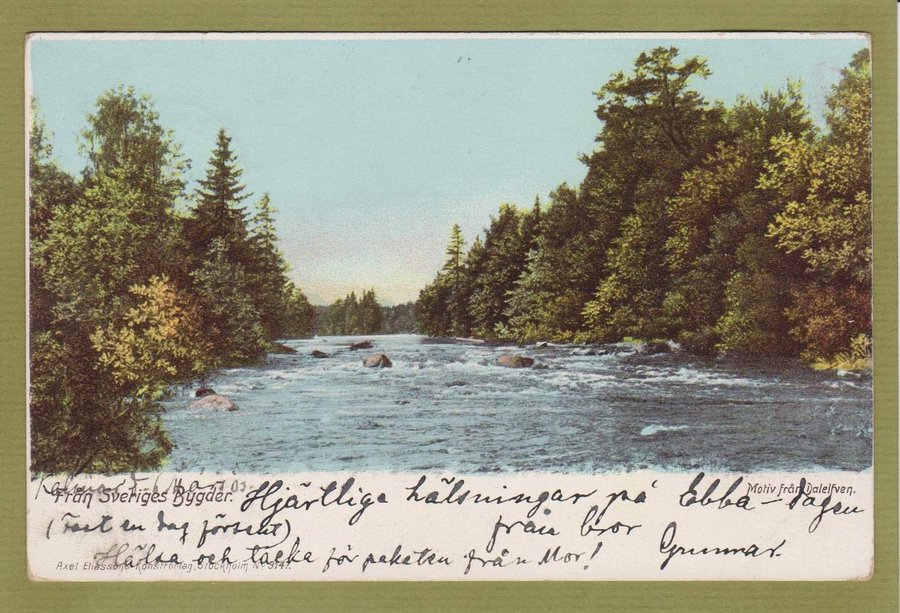 Kalmar d. 1/11 03.
Från Sveriges Bygder.
Motiv från Dalelfven.
Hjärtlige hälsningar på Ebba-dagen
(Fast en dag försent) från bror
Gunnar
Hälsa och tacka för paketen från Mor!
Axel Eliassons Konstförlag, Stockholm Nº 3147.